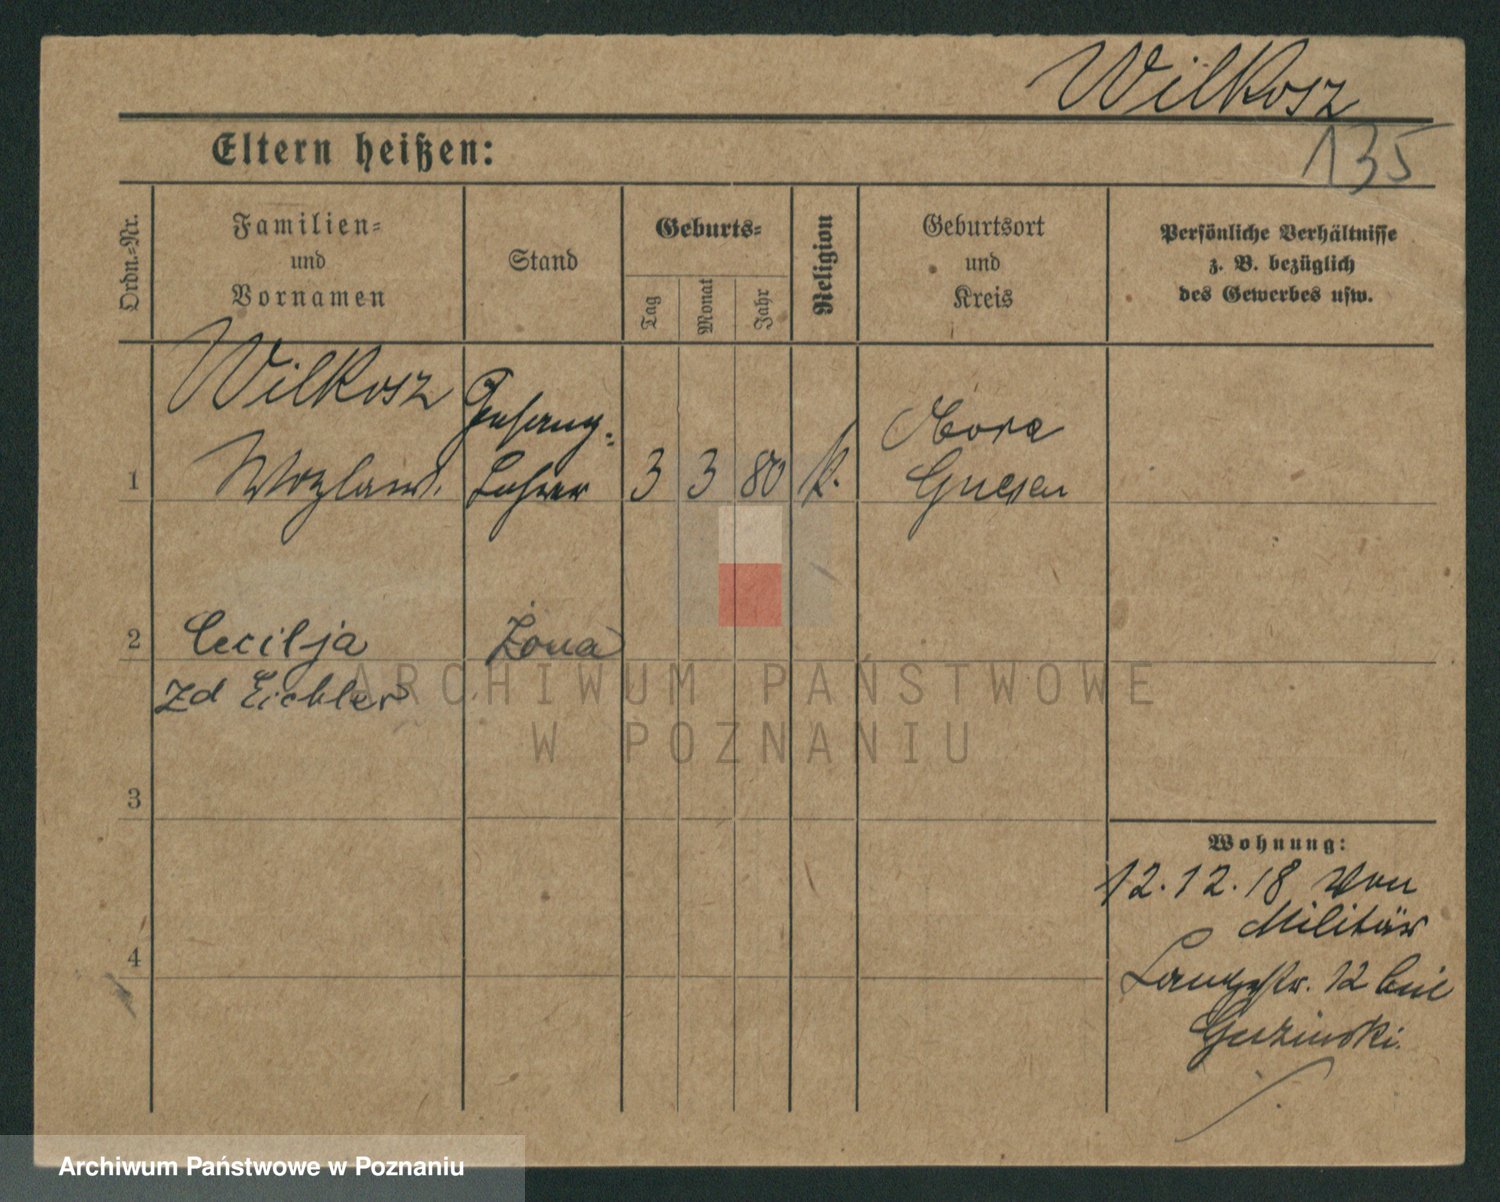 Wilkosz
135
Eltern heißen:
Ordn.-Nr.
Familien-
und
Vornamen
Stand
Geburts-
Tag
Monat
Jahr
Religion
Geburtsort
und
Kreis
Persönliche Verhältnisse
z. B. bezüglich
des Gewerbes usw.
Wilkosz
Gesang-
1
Lehrer
3 3 80 k.
Gnesen
2 Cecilja Żona
zd Eichler
ARCHIWUM PAŃSTWOWE
W POZNANIU
3
Wohnung:
12.12.18 von
Militär
str. 12 bei
4
Archiwum Państwowe w Poznaniu